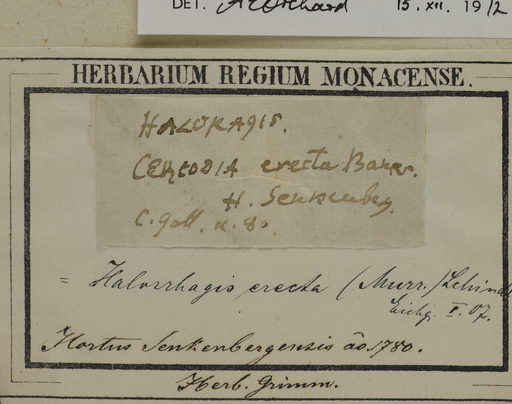 DET. A E Orchard 15. xii. 1972
HERBARIUM REGIUM MONACENSE.
HALORAGIS.
CERCODIA erecta Banks.
H. Senkenberg.
C. Goll. a. 80.
= Halorrhagis erecta (Murr.) Schindl
Eichg. V. 07.
Hortus Senkenbergensis ao. 1780.
Herb. Grimm.